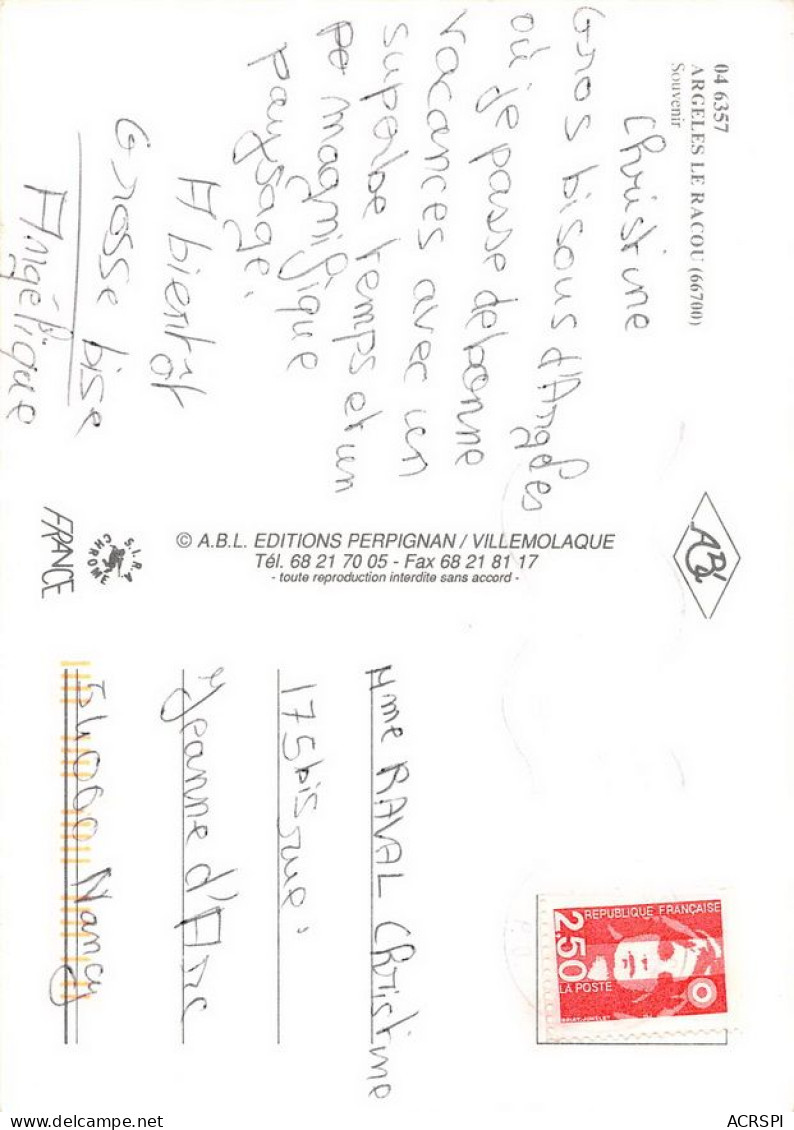 04 6357
ARGELES LE RACOU (66700)
Souvenir
Christine
Gros bisous d'Argeles
où je passe de bonne
vacances avec un
superbe temps et un
magnifique
paysage.
A bientôt
Grosse bise
Angélique
© A.B.L. EDITIONS PERPIGNAN / VILLEMOLAQUE
Tél. 68 21 70 05 - Fax 68 21 81 17
- toute reproduction interdite sans accord -
S.I.R.A. CHROME
FRANCE
REPUBLIQUE FRANÇAISE
2,50
LA POSTE
Mme RAVAL Christine
175 bis rue
Jeanne d'Arc
54000 Nancy
ACRSPI